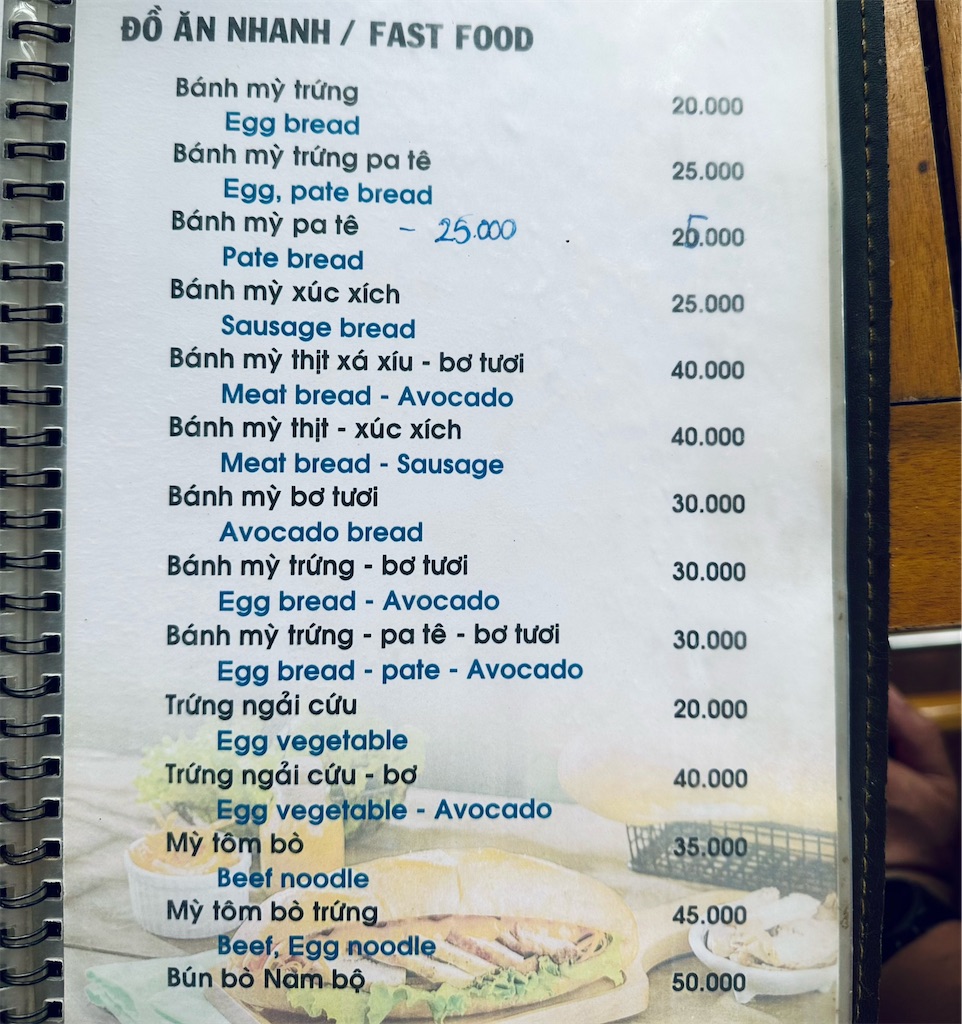 ĐỒ ĂN NHANH / FAST FOOD
Bánh mỳ trứng 20.000
Egg bread
Bánh mỳ trứng pa tê 25.000
Egg, pate bread
Bánh mỳ pa tê - 25.000 25.000
Pate bread
Bánh mỳ xúc xích 25.000
Sausage bread
Bánh mỳ thịt xá xíu - bơ tươi 40.000
Meat bread - Avocado
Bánh mỳ thịt - xúc xích 40.000
Meat bread - Sausage
Bánh mỳ bơ tươi 30.000
Avocado bread
Bánh mỳ trứng - bơ tươi 30.000
Egg bread - Avocado
Bánh mỳ trứng - pa tê - bơ tươi 30.000
Egg bread - pate - Avocado
Trứng ngải cứu 20.000
Egg vegetable
Trứng ngải cứu - bơ 40.000
Egg vegetable - Avocado
Mỳ tôm bò 35.000
Beef noodle
Mỳ tôm bò trứng 45.000
Beef, Egg noodle
Bún bò Nam bộ 50.000